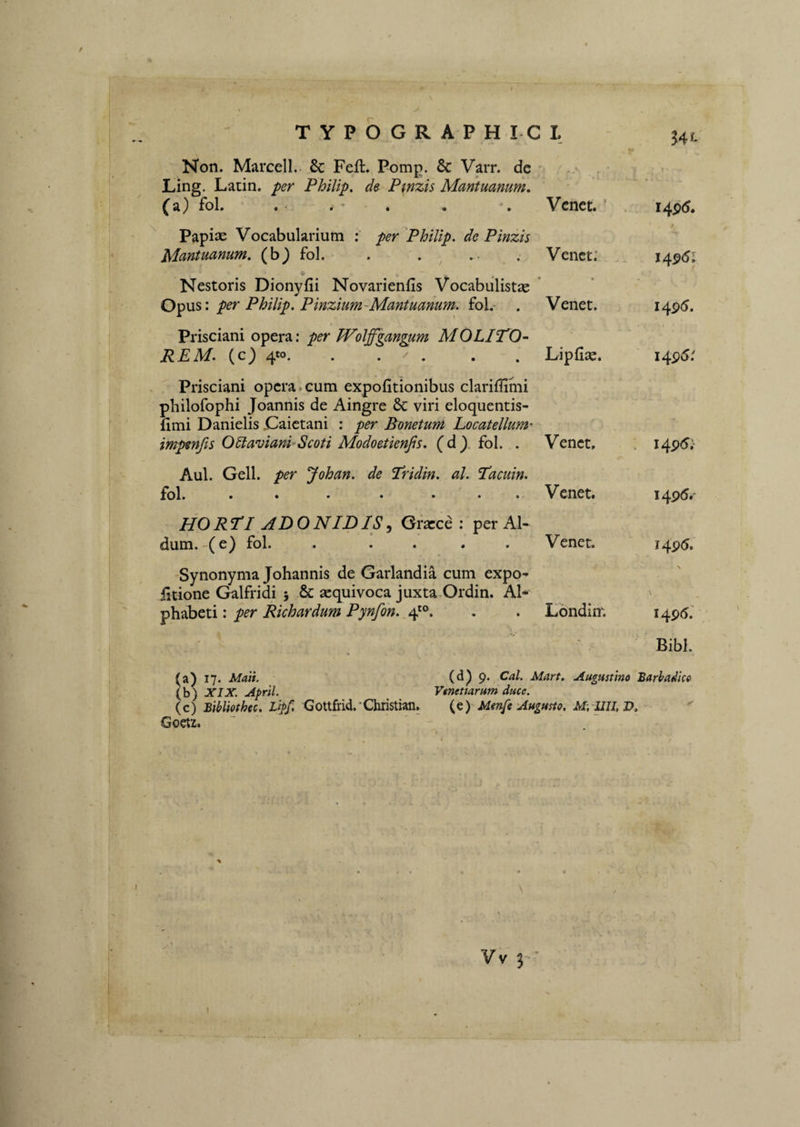 TYPOGRAPHICI. 341
Non. Marcell. & Feſt. Pomp. & Varr. de
Ling. Latin. per Philip. de Pinzis Mantuanum.
(a) fol. . . . . . Venet. 1496.
Papiæ Vocabularium : per Philip. de Pinzis
Mantuanum. (b) fol. . . . . Venet. 1496.
Nestoris Dionyſii Novarienſis Vocabulistæ
Opus: per Philip. Pinzium Mantuanum. fol. . Venet. 1496.
Prisciani opera: per Wolffgangum MOLITO-
REM. (c) 4to. . . . . . Lipſiæ. 1496.
Prisciani opera cum expoſitionibus clariſſimi
philoſophi Joannis de Aingre & viri eloquentis-
ſimi Danielis Caietani : per Bonetum Locatellum
impenſis Octaviani Scoti Modoetienſis. (d) fol. . Venet. 1496.
Aul. Gell. per Johan. de Tridin. al. Tacuin.
fol. . . . . . . . Venet. 1496.
HORTI ADONIDIS, Græcè : per Al-
dum. (e) fol. . . . . . Venet. 1496.
Synonyma Johannis de Garlandiâ cum expo-
ſitione Galfridi ; & æquivoca juxta Ordin. Al-
phabeti : per Richardum Pynſon. 4to. . . Londin. 1496.
Bibl.
(a) 17. Maii. (d) 9. Cal. Mart. Augustino Barbadico
(b) XIX. April. Venetiarum duce.
(c) Bibliothec. Lipſ. Gottfrid. Christian. (e) Menſe Augusto. M. IIII. D.
Goetz.
Vv 3